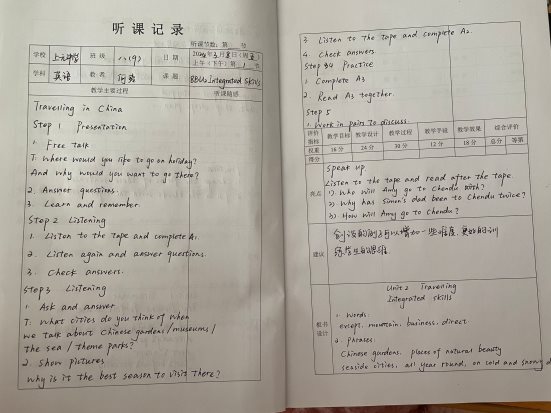 听课记录
听课节数:第 节
学校 上元中学 班级 八(9) 日期
上午(下午)第 1 节
学科 英语 教者 课题 8BU2 Integrated Skills
教学主要过程 听课随感
Travelling in China
Step 1 Presentation
1. Free talk
T: Where would you like to go on holiday?
And why would you want to go there?
2. Answer questions.
3. Learn and remember.
Step 2 Listening
1. Listen to the tape and complete A1.
2. Listen again and answer questions.
3. Check answers.
Step 3 Listening
1. Ask and answer
T: What cities do you think of when
we talk about Chinese gardens / museums /
the sea / theme parks?
2. Show pictures
Why is it the best season to visit there?
3. Listen to the tape and complete A2.
4. Check answers
Step 4 Practice
1. Complete A3
2. Read A3 together.
Step 5
1. Work in pairs to discuss.
评价指标 教学目标 教学设计 教学过程 教学手段 教学效果 综合评价
权重 16分 24分 30分 12分 18分 总分 等第
得分
亮点
Speak up
Listen to the tape and read after the tape.
1). Who will Amy go to Chendu with?
2). Why has Simon's dad been to Chendu twice?
3). How will Amy go to Chendu?
建议
可以增加一些难度,更好的训
练学生的思维.
板书设计
Unit 2 Travelling
Integrated skills
1. Words:
except. mountain. business. direct
2. Phrases:
Chinese gardens. places of natural beauty
seaside cities. all year round, on cold and snowy d